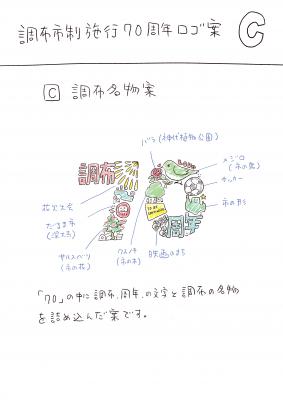 調布市制施行70周年ロゴ案
C
C 調布名物案
バラ(神代植物公園)
メジロ
(市の鳥)
サッカー
調布
花火大会
市の形
だるま市
(深大寺)
周年
サルスベリ
(市の花)
クスノキ
(市の木)
映画のまち
「70」の中に調布、周年、の文字と調布の名物
を詰め込んだ案です。